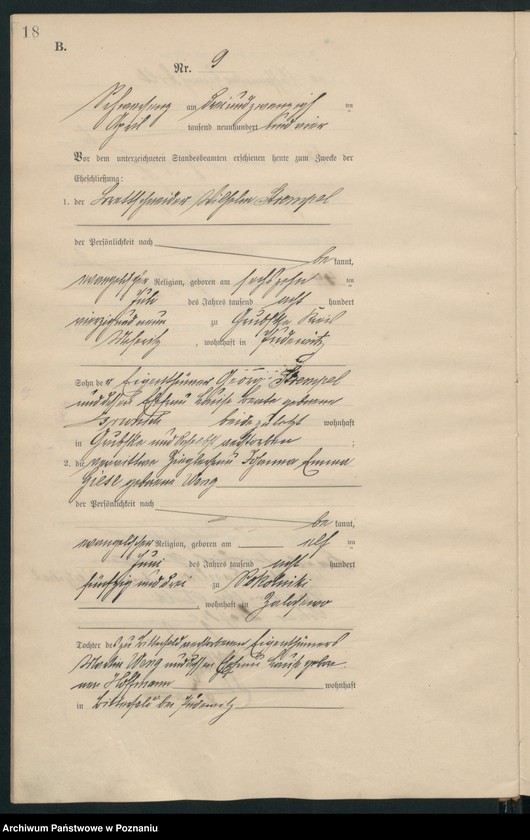 18
B.
Nr. 9
am dreiundzwanzig ten
April tausend neunhundert und vier
Vor dem unterzeichneten Standesbeamten erschienen heute zum Zwecke der
Eheschließung:
1. der Brettschneider Wilhelm Strempel
der Persönlichkeit nach
be kannt,
evangelischer Religion, geboren am sechszehn ten
Juli des Jahres tausend acht hundert
vierzig und neun zu Grubske Kreis
, wohnhaft in Pudewitz
Sohn der Eigenthümer Georg Strempel
und dessen Ehefrau Luise Beate geborene
beide zuletzt wohnhaft
in Grubske und daselbst verstorben ;
2. die verwittwete Johanna Emma
Giese geborene Weng
der Persönlichkeit nach
be kannt,
evangelischer Religion, geboren am elf ten
Juni des Jahres tausend acht hundert
fünfzig und drei zu Sokolniki
, wohnhaft in Zalesewo
Tochter des zu verstorbenen Eigenthümers
Martin Weng und dessen Ehefrau Luise gebo-
renen Hoffmann wohnhaft
in bei Pudewitz
Archiwum Państwowe w Poznaniu